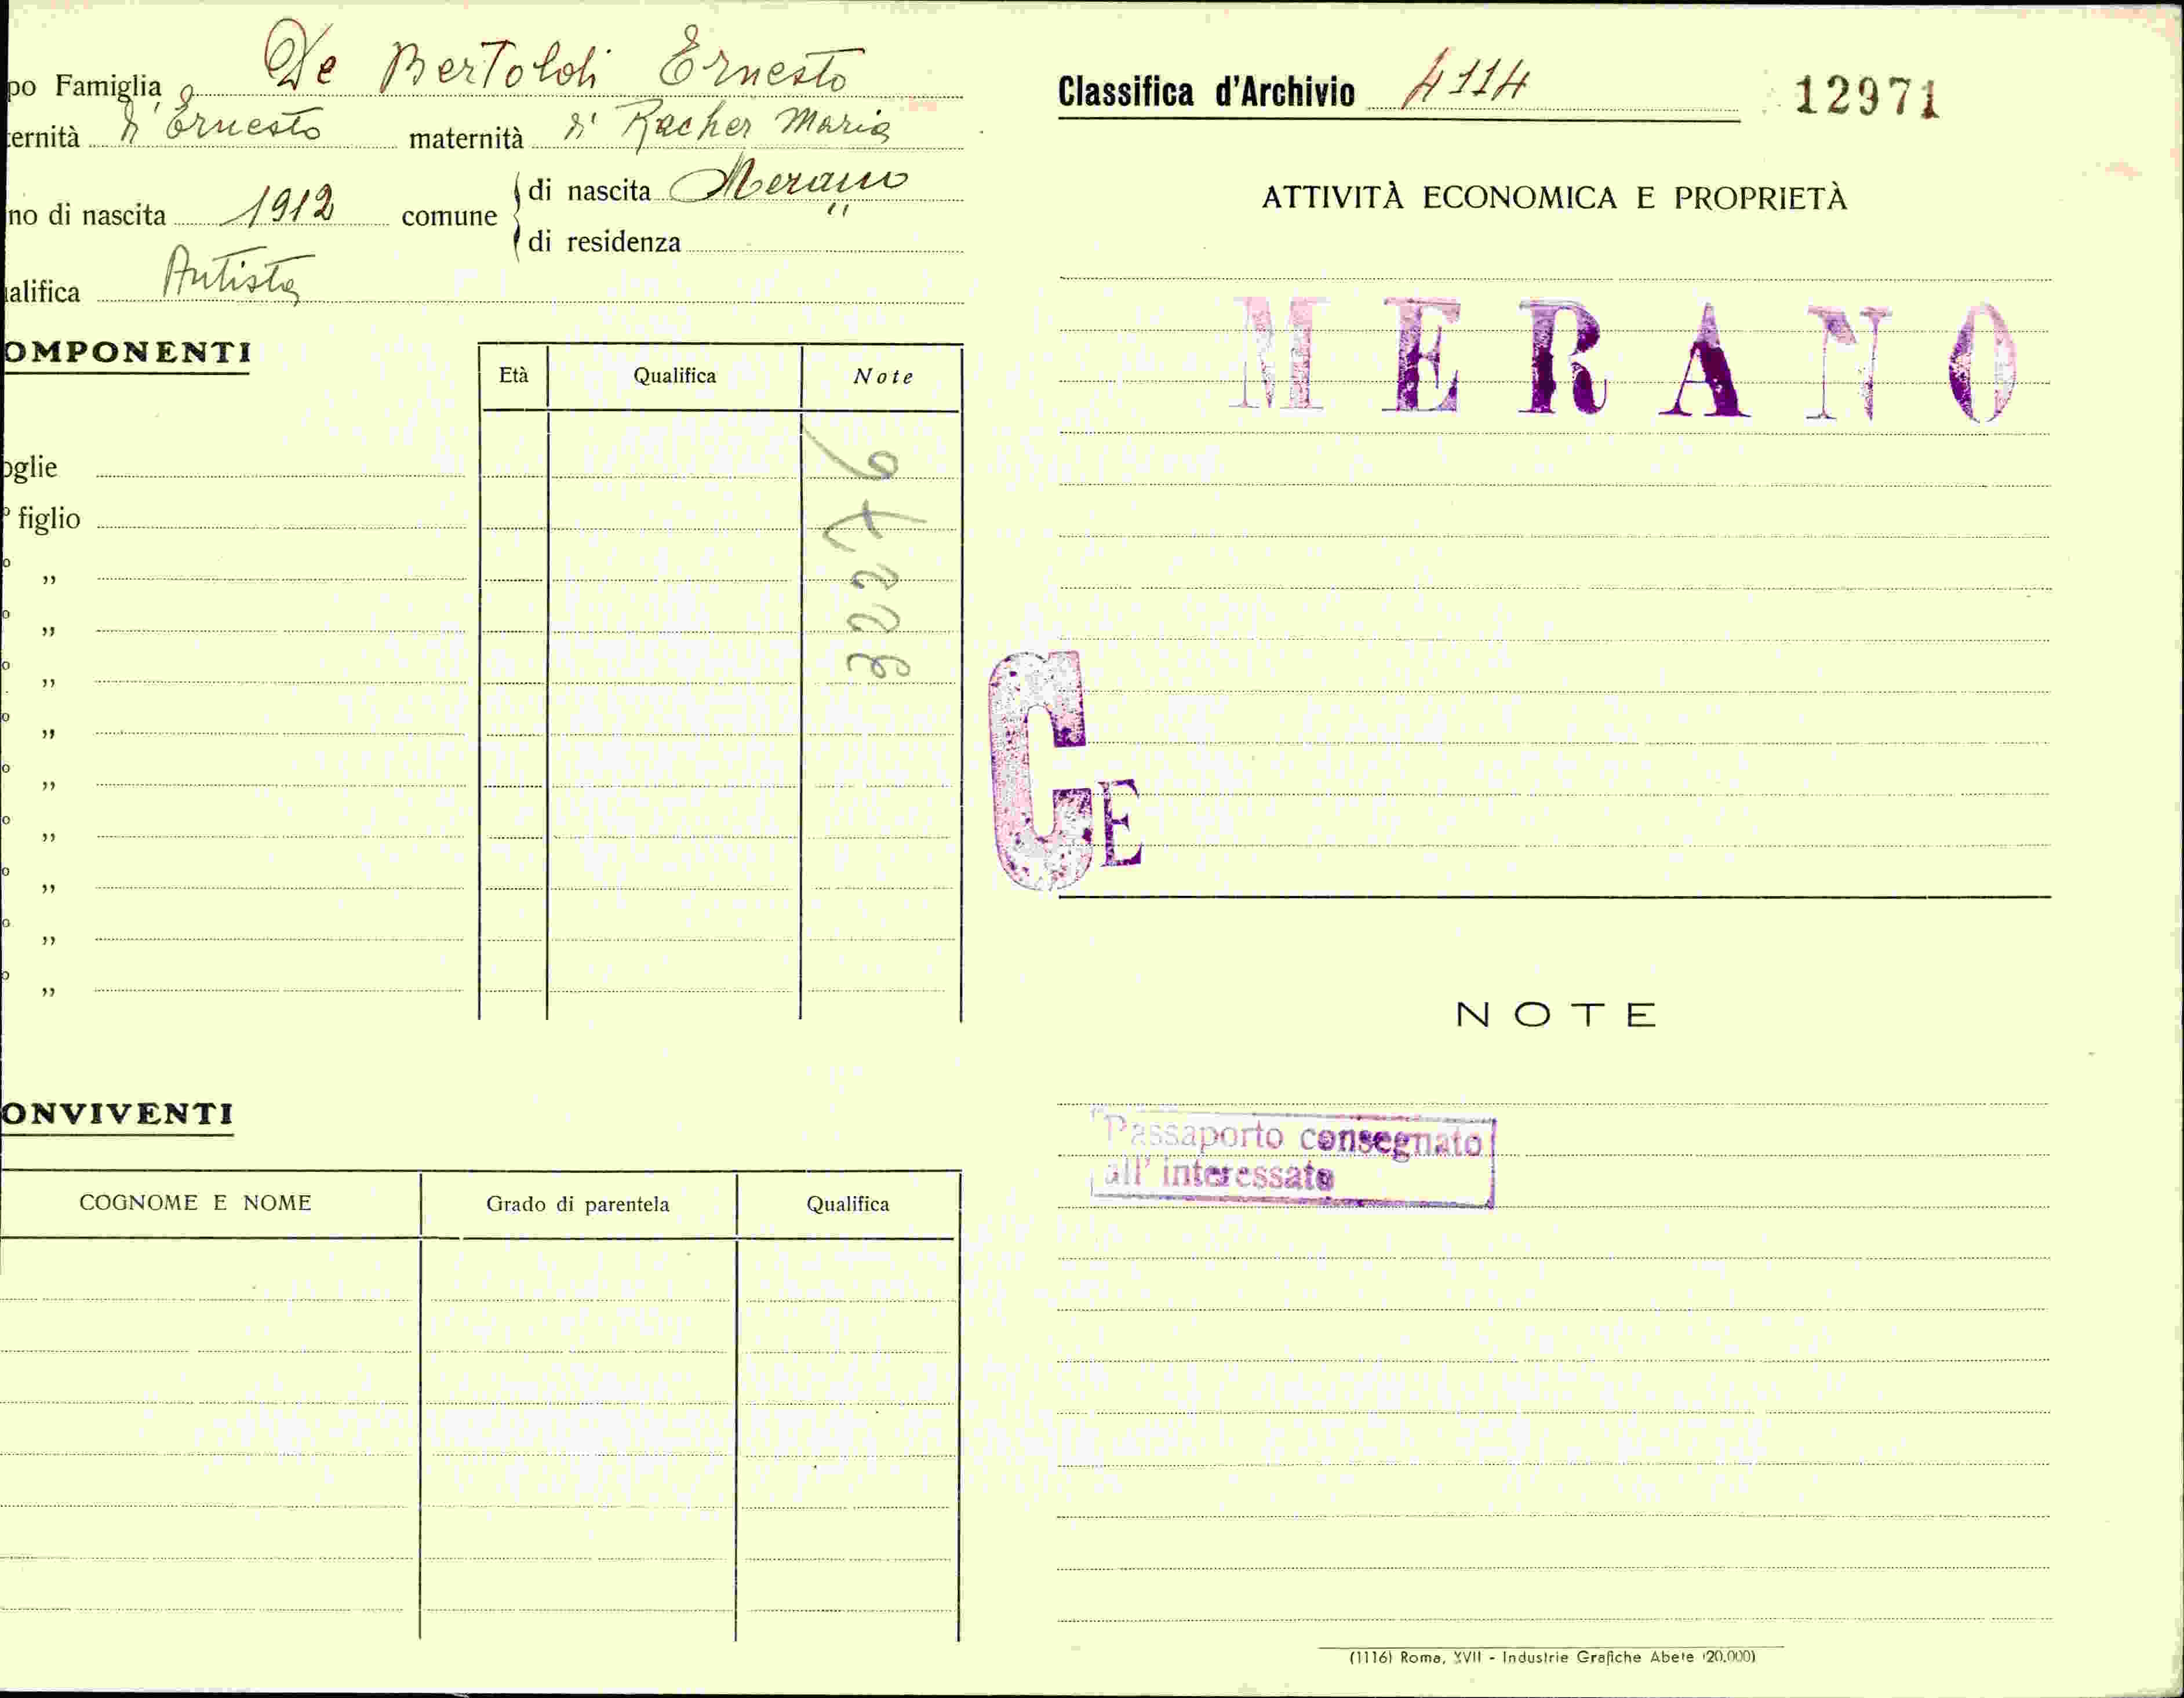 po Famiglia De Bertoldi Ernesto
ternità di Ernesto maternità di Racher Maria
no di nascita 1912 comune di nascita Merano
di residenza "
alifica Autista
OMPONENTI
Età Qualifica Note
oglie
° figlio
o ,,
o ,,
o ,,
o ,,
o ,,
o ,,
o ,,
o ,,
o ,,
ONVIVENTI
COGNOME E NOME Grado di parentela Qualifica
Classifica d'Archivio 4114 12971
ATTIVITÀ ECONOMICA E PROPRIETÀ
MERANO
CE
NOTE
Passaporto consegnato
all' interessato
(1116) Roma, XVII - Industrie Grafiche Abete (20.000)